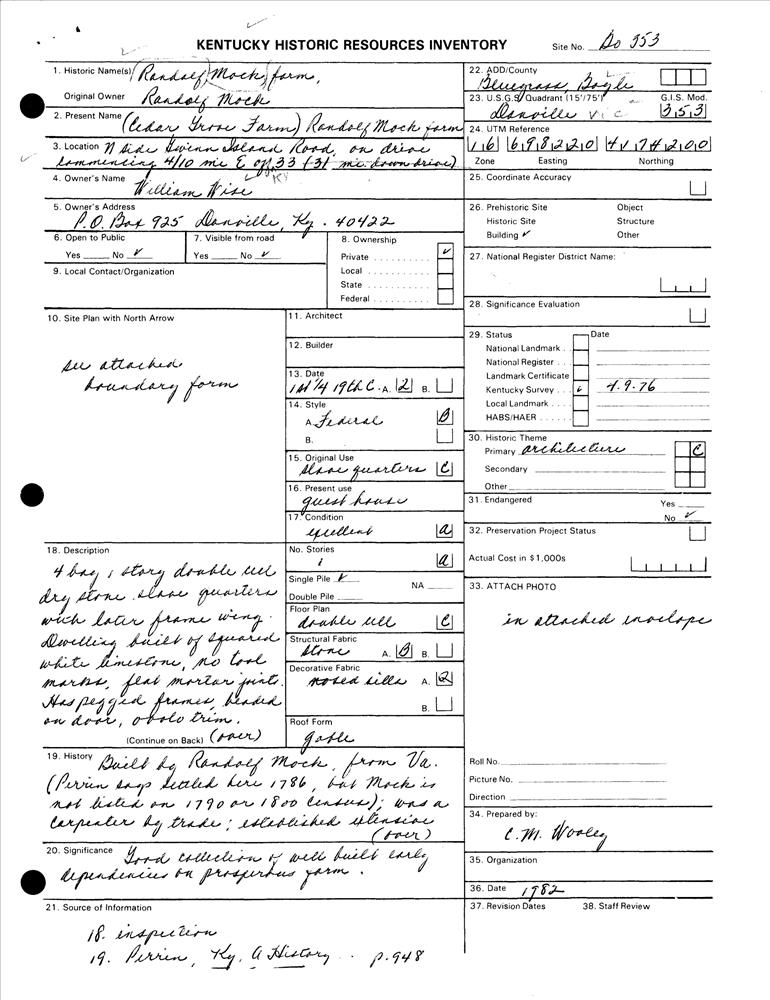 KENTUCKY HISTORIC RESOURCES INVENTORY
Site No. Bo 353
1. Historic Name(s) Randolf Mock farm,
Original Owner Randolf Mock
2. Present Name (Cedar Grove Farm) Randolf Mock farm
3. Location N side Gwinn Island Road, on drive
commencing 4/10 mi E of 33 (.3 mi down drive)
4. Owner's Name William Wise
5. Owner's Address
P.O. Box 925 Danville, Ky. 40422
6. Open to Public
Yes No ✓
7. Visible from road
Yes No ✓
8. Ownership
Private ✓
Local
State
Federal
9. Local Contact/Organization
10. Site Plan with North Arrow
see attached
boundary form
11. Architect
12. Builder
13. Date
1st 1/4 19th C. A. 2 B.
14. Style
A. Federal B
B.
15. Original Use
slave quarters C
16. Present use
guest house
17. Condition
excellent a
18. Description
4 bay, 1 story double cell
dry stone slave quarters
with later frame wing.
Dwelling built of squared
white limestone, no tool
marks, flat mortar joints.
Has pegged frames, beaded
on door, ovolo trim.
(Continue on Back) (over)
No. Stories
1 a
Single Pile ✓ NA
Double Pile
Floor Plan
double cell C
Structural Fabric
stone A. B B.
Decorative Fabric
nosed sills A. 2
B.
Roof Form
gable
19. History Built by Randolf Mock, from Va.
(Perrin says settled here 1786, but Mock is
not listed on 1790 or 1800 census); was a
carpenter by trade; established extensive
(over)
20. Significance Good collection of well built early
dependencies on prosperous farm.
21. Source of Information
18. inspection
19. Perrin, Ky. A History . . p. 948
22. ADD/County
Bluegrass, Boyle
23. U.S.G.S. Quadrant (15'/7.5') G.I.S. Mod.
Danville 353
24. UTM Reference
16 698220 4174200
Zone Easting Northing
25. Coordinate Accuracy
26. Prehistoric Site Object
Historic Site Structure
Building ✓ Other
27. National Register District Name:
28. Significance Evaluation
29. Status Date
National Landmark
National Register
Landmark Certificate
Kentucky Survey ✓ 4.9.76
Local Landmark
HABS/HAER
30. Historic Theme
Primary architecture C
Secondary
Other
31. Endangered Yes
No ✓
32. Preservation Project Status
Actual Cost in $1,000s
33. ATTACH PHOTO
in attached envelope
Roll No.
Picture No.
Direction
34. Prepared by:
C.M. Wooley
35. Organization
36. Date 1982
37. Revision Dates 38. Staff Review